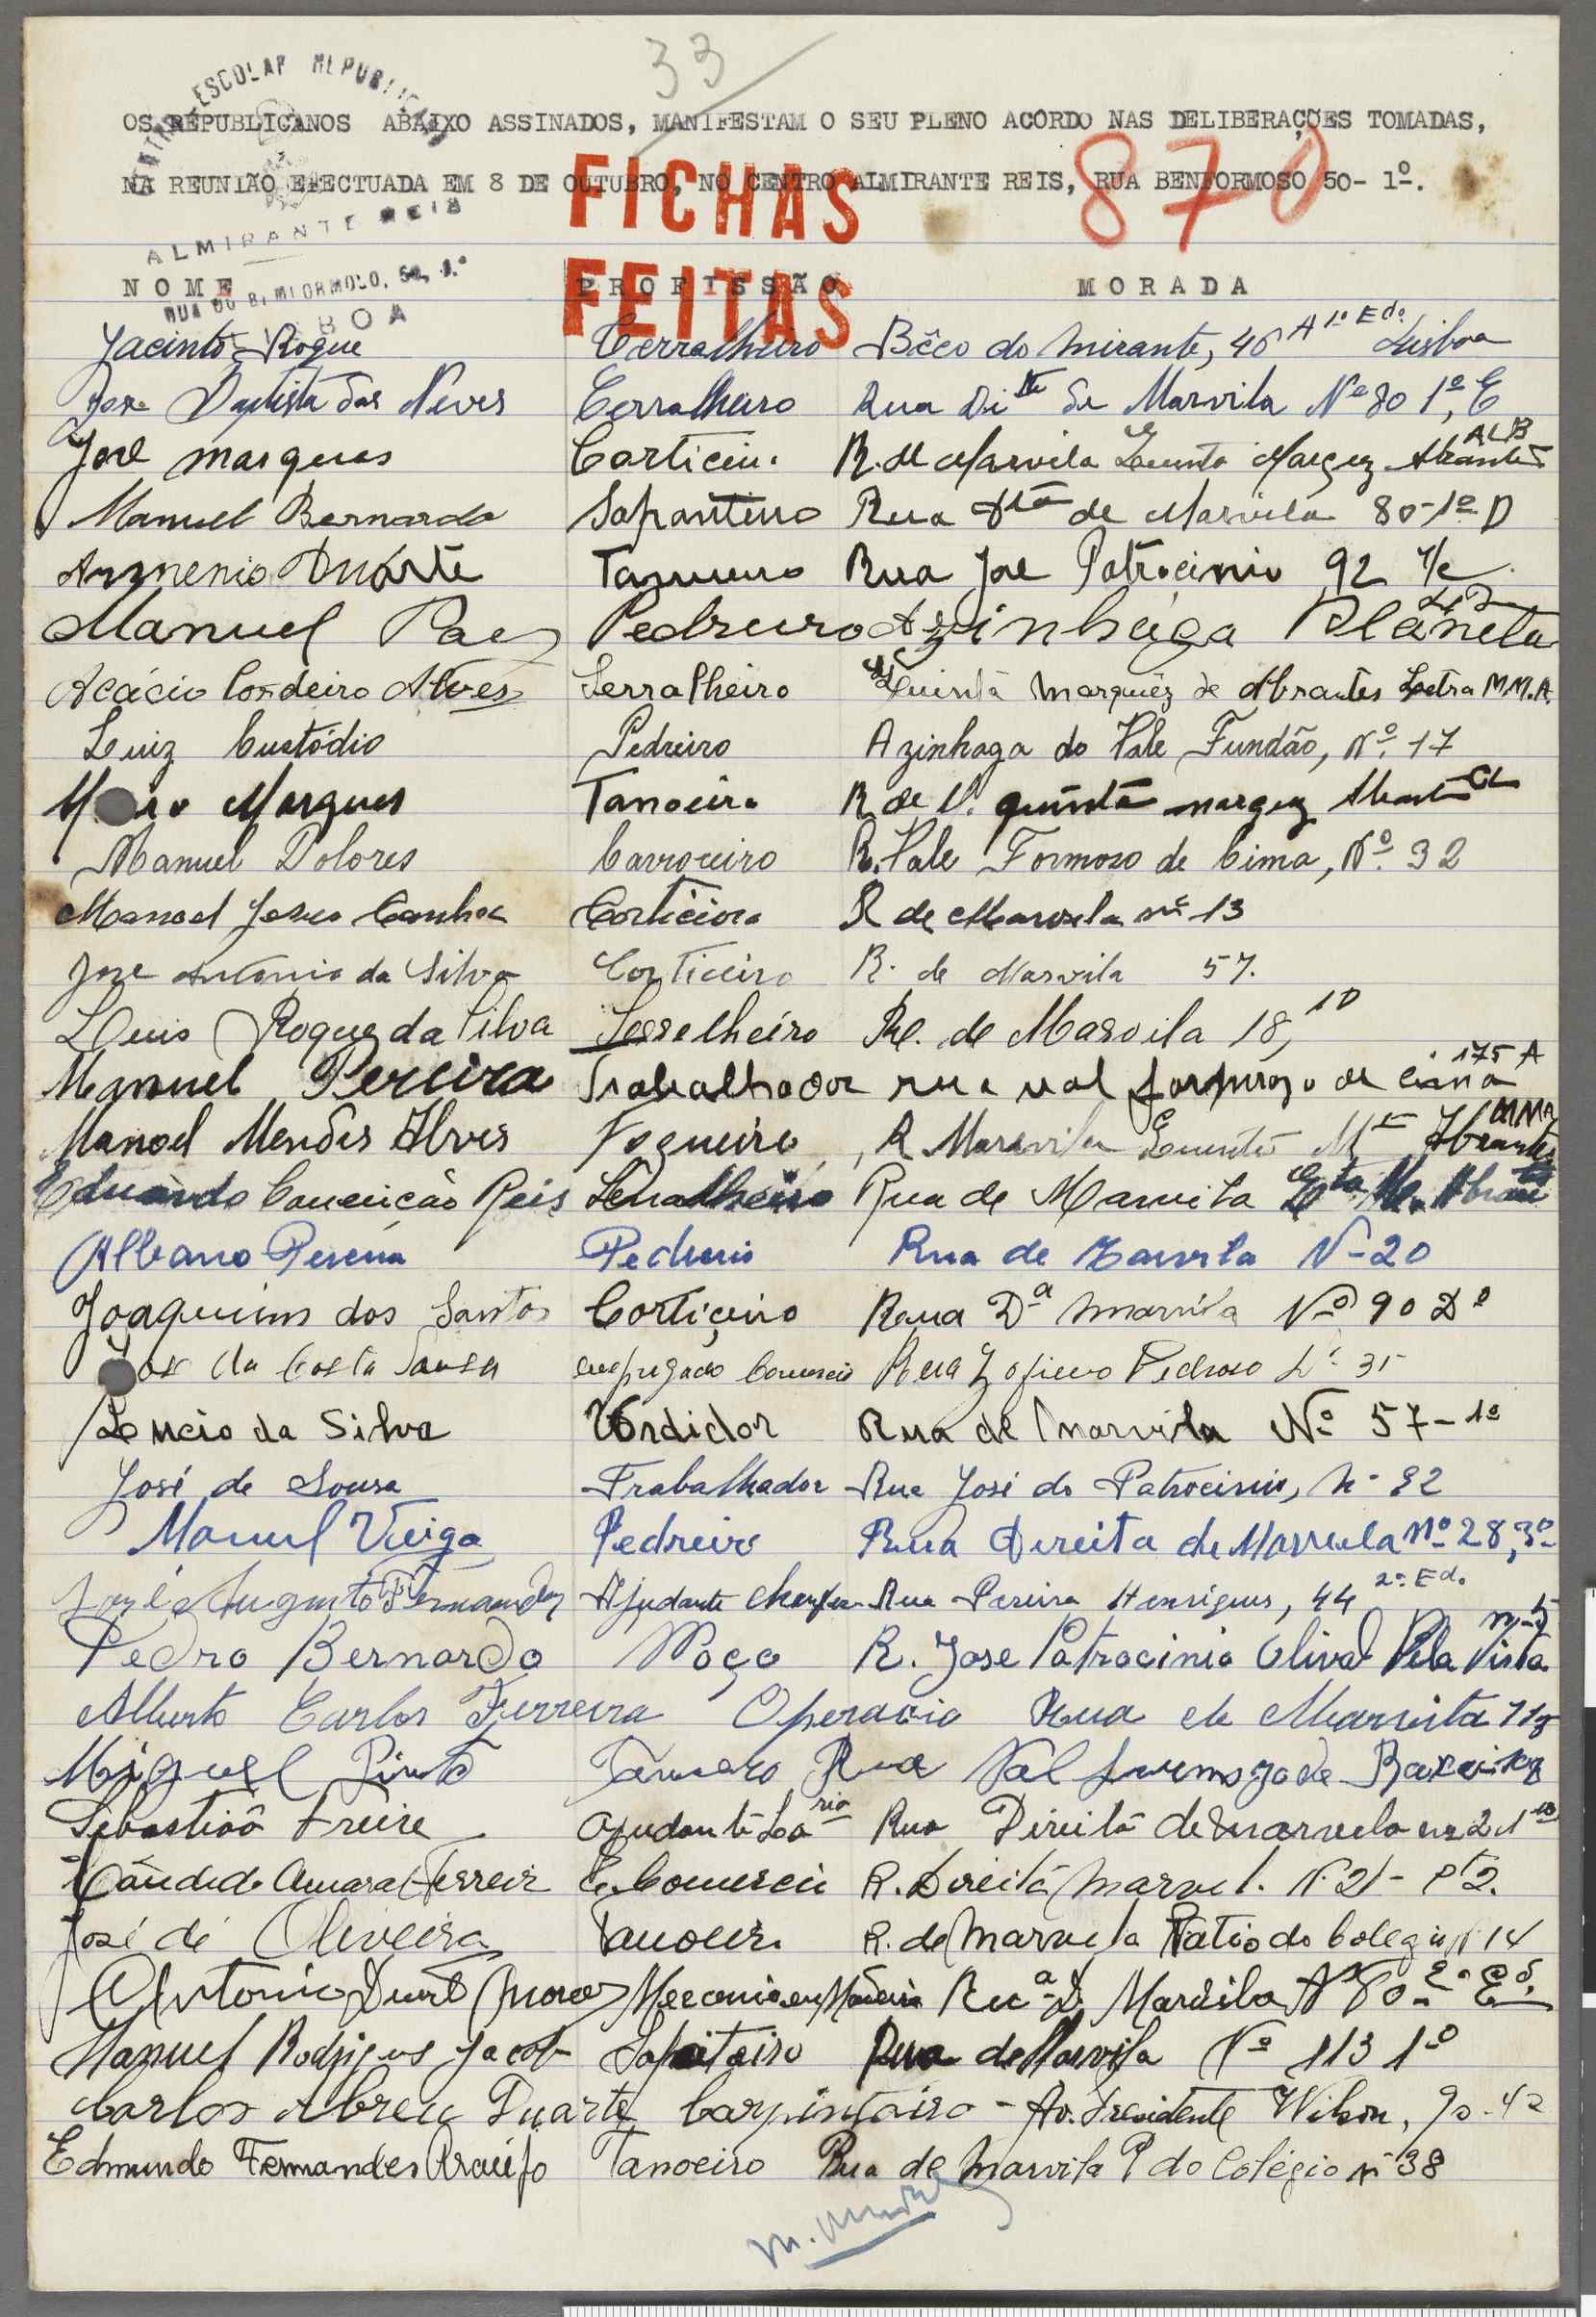 33
ESCOLAR REPUBLICANO
OS REPUBLICANOS ABAIXO ASSINADOS, MANIFESTAM O SEU PLENO ACORDO NAS DELIBERAÇÕES TOMADAS,
870
NA REUNIÃO EFECTUADA EM 8 DE OUTUBRO, NO CENTRO ALMIRANTE REIS, RUA BENFORMOSO 50- 1º.
FICHAS
FEITAS
ALMIRANTE REIS
RUA DO BEMFORMOSO, 50, 1.º
LISBOA
NOME PROFISSÃO MORADA
Jacinto Roque Cerralheiro Bêco do Mirante, 46 A 1º Edo. Lisboa
Jose Baptista das Neves Cerralheiro Rua Dita de Marvila Nº 80 1º, E
José Marques Corticeiro R. de Marvila Quinta Marquez Abrantes ALB
Manuel Bernardo Sapanteiro Rua Dta de Marvila 80-1º D
Armenio Duarte Tanoeiro Rua José Patrocinio 92 r/c
Manuel Paes Pedreiro Azinhaga Planeta
Acácio Cordeiro Alves Serralheiro Quinta Marquêz de Abrantes Letra M.M.A.
Luiz Custódio Pedreiro Azinhaga do Vale Fundão, Nº 17
Marques Tanoeiro R de M. quinta marquez Abrantes CL
Manuel Dolores Carroceiro R. Vale Formoso de Cima, Nº 32
Manoel Jesus Canhoa Corticeiro R de Marvila nº 13
Jose Antonio da Silva Corticeiro R. de Marvila 57.
Luis Roque da Silva Serrelheiro R. de Marvila 18, 1D
Manuel Pereira Trabalhador rua val formozo de cima 175 A
Manoel Mendes Alves Fogueiro, R. Marvila Quinta M. Abrantes MMA
Eduardo Conceição Reis Serralheiro Rua de Marvila Qta M. Abrantes
Albano Pereira Pedreiro Rua de Marvila Nº 20
Joaquim dos Santos Corticeiro Rua Dª Marvila Nº 90 Dº
José da Costa Sousa empregado Comercio Rua Zofimo Pedroso 35
Lucio da Silva Urdidor Rua de Marvila Nº 57-1º
José de Sousa Trabalhador Rua José do Patrocinio, nº 92
Manuel Veiga Pedreiro Rua Direita de Marvila nº 28, 3º
José Augusto Fernandes Ajudante Chaufer Rua Pereira Henriques, 44 2º Edo.
Pedro Bernardo Moço R. Jose Patrocinio Olival Vila Vista nº 5
Alberto Carlos Ferreira Operario Rua de Marvila 113
Miguel Pinto Tanoeiro Rua Val furmozo de Baxo
Sebastião Freire Ajudante Rua Direita de Marvila nº 2 1º
Cândido Amaral Ferreir E. Comercio R. Direita Marvil. Nº 21- Pt 2.
José de Oliveira Tanoeiro R. de Marvila Patio do Colegio Nº 14
Antonio Duarte Mecanico em Madeira Rua D. Marvila Nº 80 2º Ed.
Manuel Rodrigues Jacob Sapateiro Rua de Marvila Nº 113 1º
Carlos Abreu Duarte Carpinteiro - Av. Presidente Wilson, 90-4º
Edmundo Fernandes Araujo Tanoeiro Rua de Marvila P do Colégio nº 38